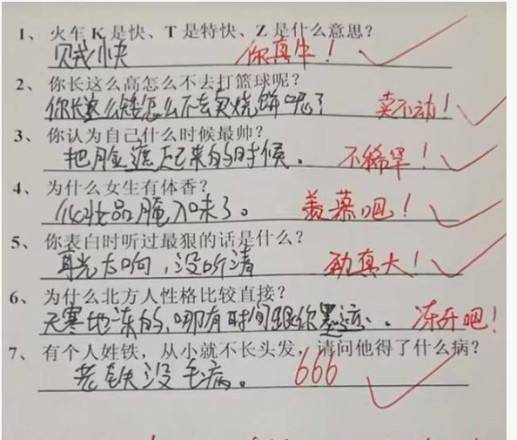 1、火车 K 是快、T 是特快、Z 是什么意思？
贼快 你真牛！
2、你长这么高怎么不去打篮球呢？
你长这么矮怎么不去卖烧饼呢？ 卖不动！
3、你认为自己什么时候最帅？
把脸遮起来的时候。 不稀罕！
4、为什么女生有体香？
化妆品腌入味了。 羡慕吧！
5、你表白时听过最狠的话是什么？
耳光太响，没听清 劲真大！
6、为什么北方人性格比较直接？
天寒地冻的，哪有时间跟你墨迹。 冻开吧！
7、有个人姓铁，从小就不长头发，请问他得了什么病？
老铁没毛病。 666